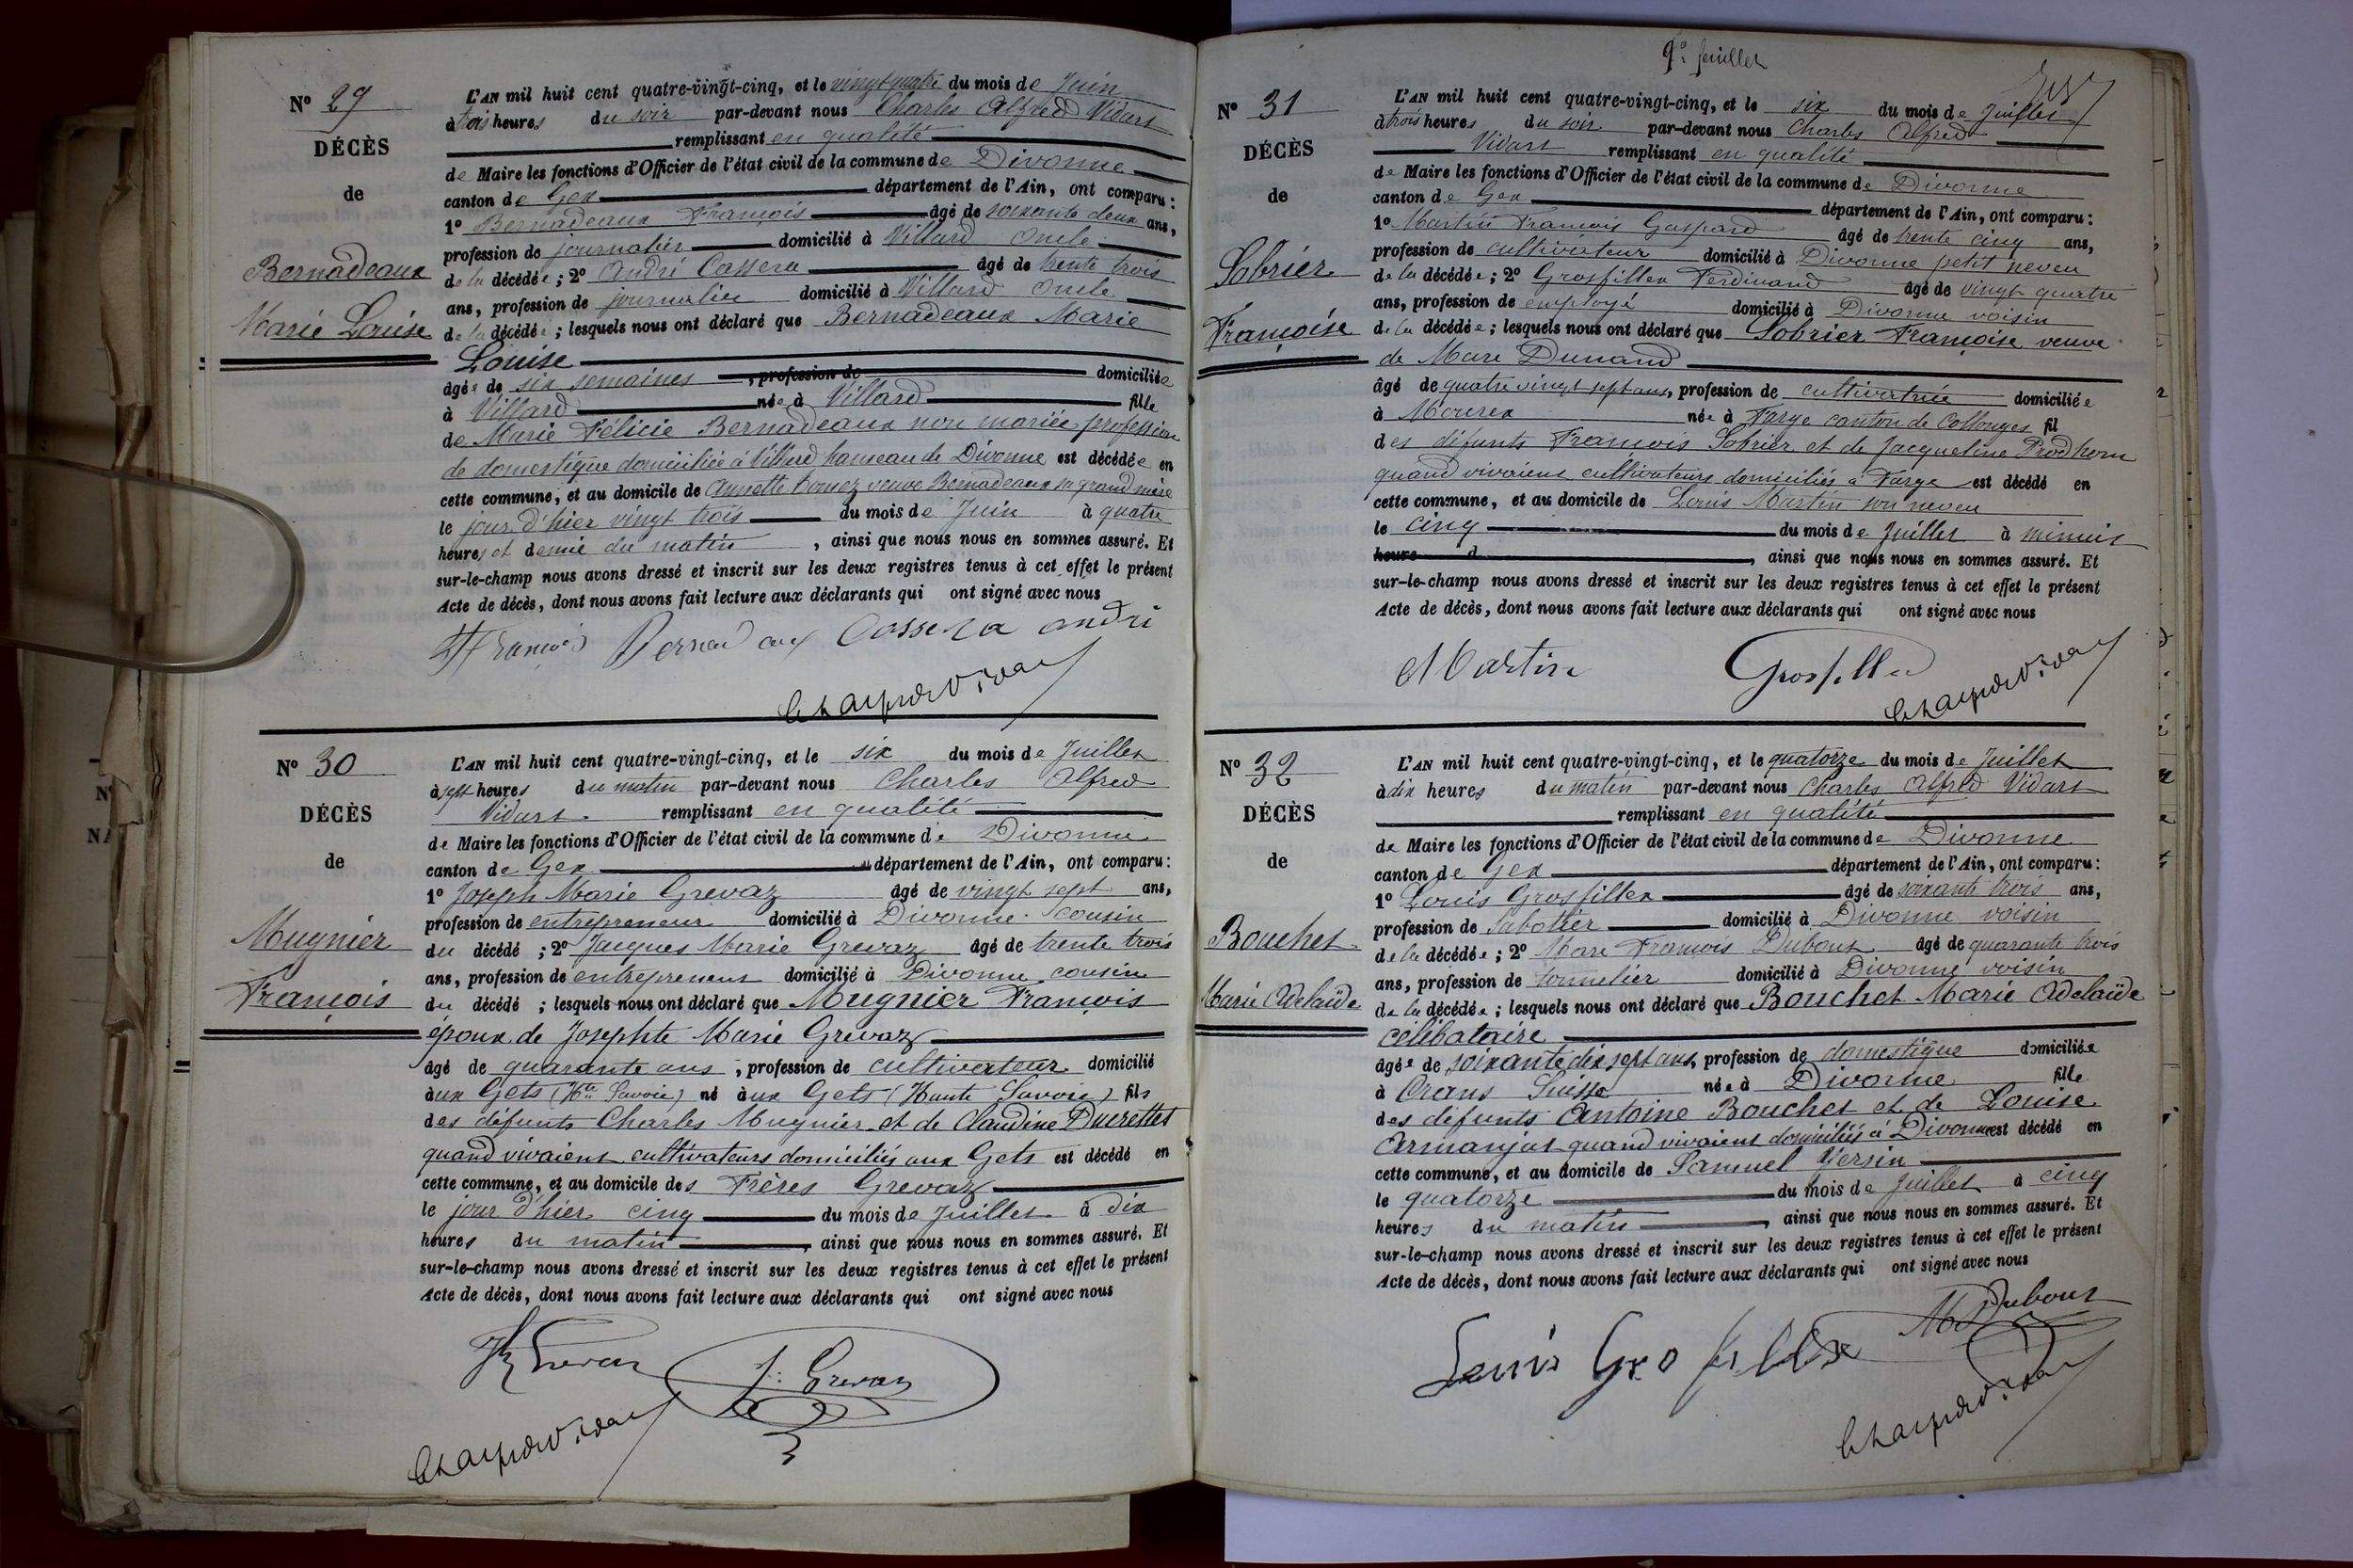 Nº 29
DÉCÈS
de
Bernadeaux
Marie Louise
L'AN mil huit cent quatre-vingt-cinq, et le vingt quatre du mois de Juin
à trois heures du soir par-devant nous Charles Alfred Vidart
remplissant en qualité
de Maire les fonctions d'Officier de l'état civil de la commune de Divonne
canton de Gex département de l'Ain, ont comparu :
1º Bernadeaux François âgé de soixante deux ans,
profession de journalier domicilié à Villard oncle
de la décédée ; 2º André Cassera âgé de trente trois
ans, profession de journalier domicilié à Villard oncle
de la décédée ; lesquels nous ont déclaré que Bernadeaux Marie
Louise
âgée de six semaines , profession de domiciliée
à Villard née à Villard fille
de Marie Félicie Bernadeaux non mariée profession
de domestique domiciliée à Villard hameau de Divonne est décédée en
cette commune, et au domicile de Annette veuve Bernadeaux sa grand mère
le jour d'hier vingt trois du mois de Juin à quatre
heures et demie du matin , ainsi que nous nous en sommes assuré. Et
sur-le-champ nous avons dressé et inscrit sur les deux registres tenus à cet effet le présent
Acte de décès, dont nous avons fait lecture aux déclarants qui ont signé avec nous
François Bernadeaux Cassera andré
Nº 30
DÉCÈS
de
Mugnier
François
L'AN mil huit cent quatre-vingt-cinq, et le six du mois de Juillet
à sept heures du matin par-devant nous Charles Alfred
Vidart remplissant en qualité
de Maire les fonctions d'Officier de l'état civil de la commune de Divonne
canton de Gex département de l'Ain, ont comparu :
1º Joseph Marie Grevaz âgé de vingt sept ans,
profession de entrepreneur domicilié à Divonne cousin
du décédé ; 2º Jacques Marie Grevaz âgé de trente trois
ans, profession de entrepreneur domicilié à Divonne cousin
du décédé ; lesquels nous ont déclaré que Mugnier François
époux de Josephte Marie Grevaz
âgé de quarante ans , profession de cultivateur domicilié
aux Gets (Hte Savoie) né aux Gets (Haute Savoie) fils
des défunts Charles Mugnier et de Claudine Ducrettet
quand vivaient cultivateurs domiciliés aux Gets est décédé en
cette commune, et au domicile des Frères Grevaz
le jour d'hier cinq du mois de Juillet à dix
heures du matin , ainsi que nous nous en sommes assuré. Et
sur-le-champ nous avons dressé et inscrit sur les deux registres tenus à cet effet le présent
Acte de décès, dont nous avons fait lecture aux déclarants qui ont signé avec nous
J. Grevaz
9e feuillet
Nº 31
DÉCÈS
de
Sobrier
Françoise
L'AN mil huit cent quatre-vingt-cinq, et le six du mois de Juillet
à trois heures du soir par-devant nous Charles Alfred
Vidart remplissant en qualité
de Maire les fonctions d'Officier de l'état civil de la commune de Divonne
canton de Gex département de l'Ain, ont comparu :
1º Martin François Gaspard âgé de trente cinq ans,
profession de cultivateur domicilié à Divonne petit neveu
de la décédée ; 2º Grosfillex Ferdinand âgé de vingt quatre
ans, profession de employé domicilié à Divonne voisin
de la décédée ; lesquels nous ont déclaré que Sobrier Françoise veuve
de Marc Dunand
âgé de quatre vingt sept ans, profession de cultivatrice domiciliée
à Mourex née à Farge canton de Collonges fil
des défunts François Sobrier et de Jacqueline Prodhom
quand vivaient cultivateurs domiciliés à Farge est décédé en
cette commune, et au domicile de Louis Martin son neveu
le cinq du mois de Juillet à minuit
heure d , ainsi que nous nous en sommes assuré. Et
sur-le-champ nous avons dressé et inscrit sur les deux registres tenus à cet effet le présent
Acte de décès, dont nous avons fait lecture aux déclarants qui ont signé avec nous
Martin Grosfillex
Nº 32
DÉCÈS
de
Bouchet
Marie Adelaïde
L'AN mil huit cent quatre-vingt-cinq, et le quatorze du mois de Juillet
à dix heures du matin par-devant nous Charles Alfred Vidart
remplissant en qualité
de Maire les fonctions d'Officier de l'état civil de la commune de Divonne
canton de Gex département de l'Ain, ont comparu :
1º Louis Grosfillex âgé de soixante trois ans,
profession de Sabotier domicilié à Divonne voisin
de la décédée ; 2º Marc François Dubout âgé de quarante trois
ans, profession de tonnelier domicilié à Divonne voisin
de la décédée ; lesquels nous ont déclaré que Bouchet Marie Adelaïde
célibataire
âgée de soixante dix sept ans, profession de domestique domiciliée
à Crans Suisse née à Divonne fille
des défunts Antoine Bouchet et de Louise
Armanjat quand vivaient domiciliés à Divonne est décédé en
cette commune, et au domicile de Samuel Yersin
le quatorze du mois de Juillet à cinq
heures du matin , ainsi que nous nous en sommes assuré. Et
sur-le-champ nous avons dressé et inscrit sur les deux registres tenus à cet effet le présent
Acte de décès, dont nous avons fait lecture aux déclarants qui ont signé avec nous
Louis Grosfillex M Dubout